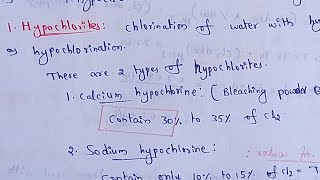 1. Hypochlorites: chlorination of water with hy
as hypochlorination.
These are 2 types of hypochlorites.
1. calcium hypochlorine: (Bleaching powder
Contain 30% to 35% of Cl2
2. Sodium hypochlorine:
Contain only 10% to 15% of Cl2 =